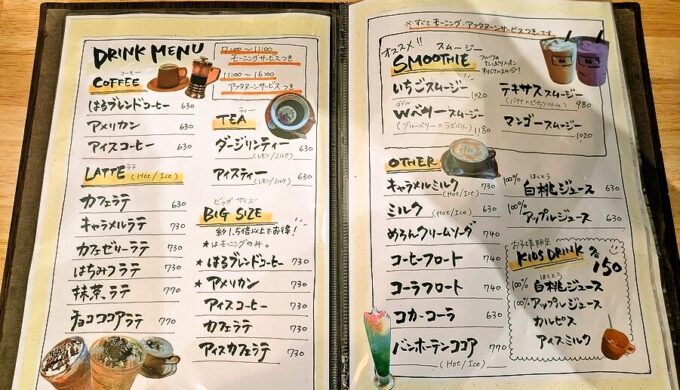 DRINK MENU
7:00～11:00
モーニングサービスつき
11:00～16:00
アフタヌーンサービスつき
コーヒー
COFFEE
はるブレンドコーヒー 630
アメリカン 630
アイスコーヒー 630
ラテ
LATTE (Hot/Ice)
カフェラテ 630
キャラメルラテ 730
カフェゼリーラテ 770
はちみつラテ 730
抹茶ラテ 770
チョコココアラテ 770
ティー
TEA
ダージリンティー 630
(レモン/ミルク)
アイスティー 630
(レモン/ミルク)
ビッグサイズ
BIG SIZE
約1.5倍以上でお得!
★はモーニングのみ。
★はるブレンドコーヒー 730
★アメリカン 730
アイスコーヒー 730
カフェラテ 730
アイスカフェラテ 730
※すべてモーニング・アフタヌーンサービスつきです
オススメ!!
スムージー
SMOOTHIE
いちごスムージー 1020
ダブル
Wベリースムージー
(ブルーベリー×ラズベリー) 1180
テキサススムージー 980
マンゴースムージー 1020
OTHER
キャラメルミルク 730
(Hot/Ice)
ミルク (Hot/Ice) 630
めろんクリームソーダ 740
コーヒーフロート 740
コーラフロート 740
コカ・コーラ 630
バンホーテンココア 770
(Hot/Ice)
はくとう
100% 白桃ジュース 630
100% アップルジュース 630
お子様限定
KIDS DRINK 各150
はくとう
100% 白桃ジュース
100% アップルジュース
カルピス
アイスミルク